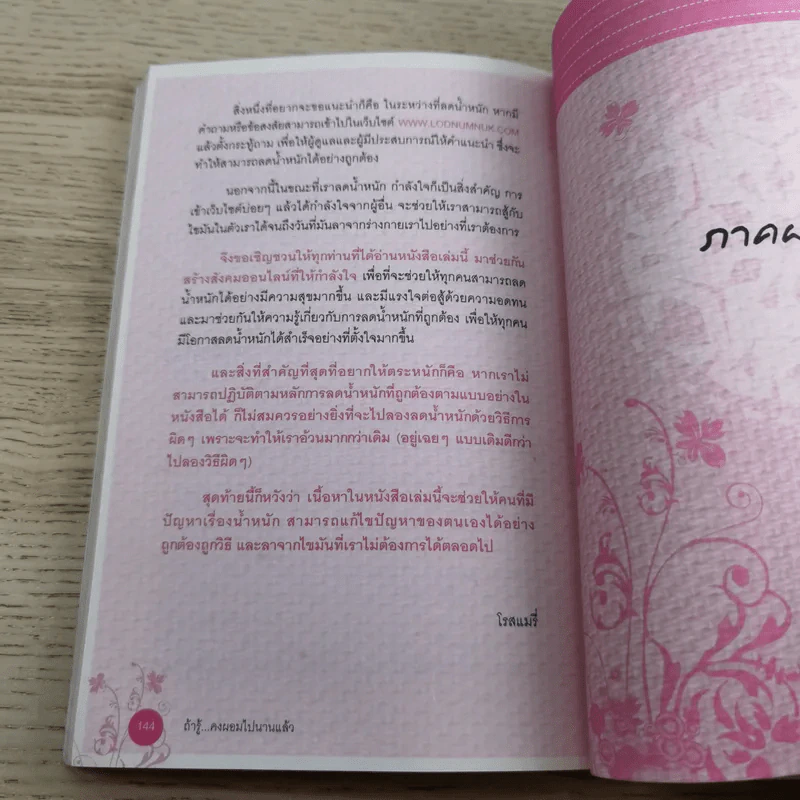 สิ่งหนึ่งที่อยากจะขอแนะนำก็คือ ในระหว่างที่ลดน้ำหนัก หากมี
คำถามหรือข้อสงสัยสามารถเข้าไปในเว็บไซต์ WWW.LODNUMNUK.COM
แล้วตั้งกระทู้ถาม เพื่อให้ผู้ดูแลและผู้มีประสบการณ์ให้คำแนะนำ ซึ่งจะ
ทำให้สามารถลดน้ำหนักได้อย่างถูกต้อง
นอกจากนี้ในขณะที่เราลดน้ำหนัก กำลังใจก็เป็นสิ่งสำคัญ การ
เข้าเว็บไซต์บ่อยๆ แล้วได้กำลังใจจากผู้อื่น จะช่วยให้เราสามารถสู้กับ
ไขมันในตัวเราได้จนถึงวันที่มันลาจากร่างกายเราไปอย่างที่เราต้องการ
จึงขอเชิญชวนให้ทุกท่านที่ได้อ่านหนังสือเล่มนี้ มาช่วยกัน
สร้างสังคมออนไลน์ที่ให้กำลังใจ เพื่อที่จะช่วยให้ทุกคนสามารถลด
น้ำหนักได้อย่างมีความสุขมากขึ้น และมีแรงใจต่อสู้ด้วยความอดทน
และมาช่วยกันให้ความรู้เกี่ยวกับการลดน้ำหนักที่ถูกต้อง เพื่อให้ทุกคน
มีโอกาสลดน้ำหนักได้สำเร็จอย่างที่ตั้งใจมากขึ้น
และสิ่งที่สำคัญที่สุดที่อยากให้ตระหนักก็คือ หากเราไม่
สามารถปฏิบัติตามหลักการลดน้ำหนักที่ถูกต้องตามแบบอย่างใน
หนังสือได้ ก็ไม่สมควรอย่างยิ่งที่จะไปลองลดน้ำหนักด้วยวิธีการ
ผิดๆ เพราะจะทำให้เราอ้วนมากกว่าเดิม (อยู่เฉยๆ แบบเดิมดีกว่า
ไปลองวิธีผิดๆ)
สุดท้ายนี้ก็หวังว่า เนื้อหาในหนังสือเล่มนี้จะช่วยให้คนที่มี
ปัญหาเรื่องน้ำหนัก สามารถแก้ไขปัญหาของตนเองได้อย่าง
ถูกต้องถูกวิธี และลาจากไขมันที่เราไม่ต้องการได้ตลอดไป
โรสแมรี่
144 ถ้ารู้...คงผอมไปนานแล้ว